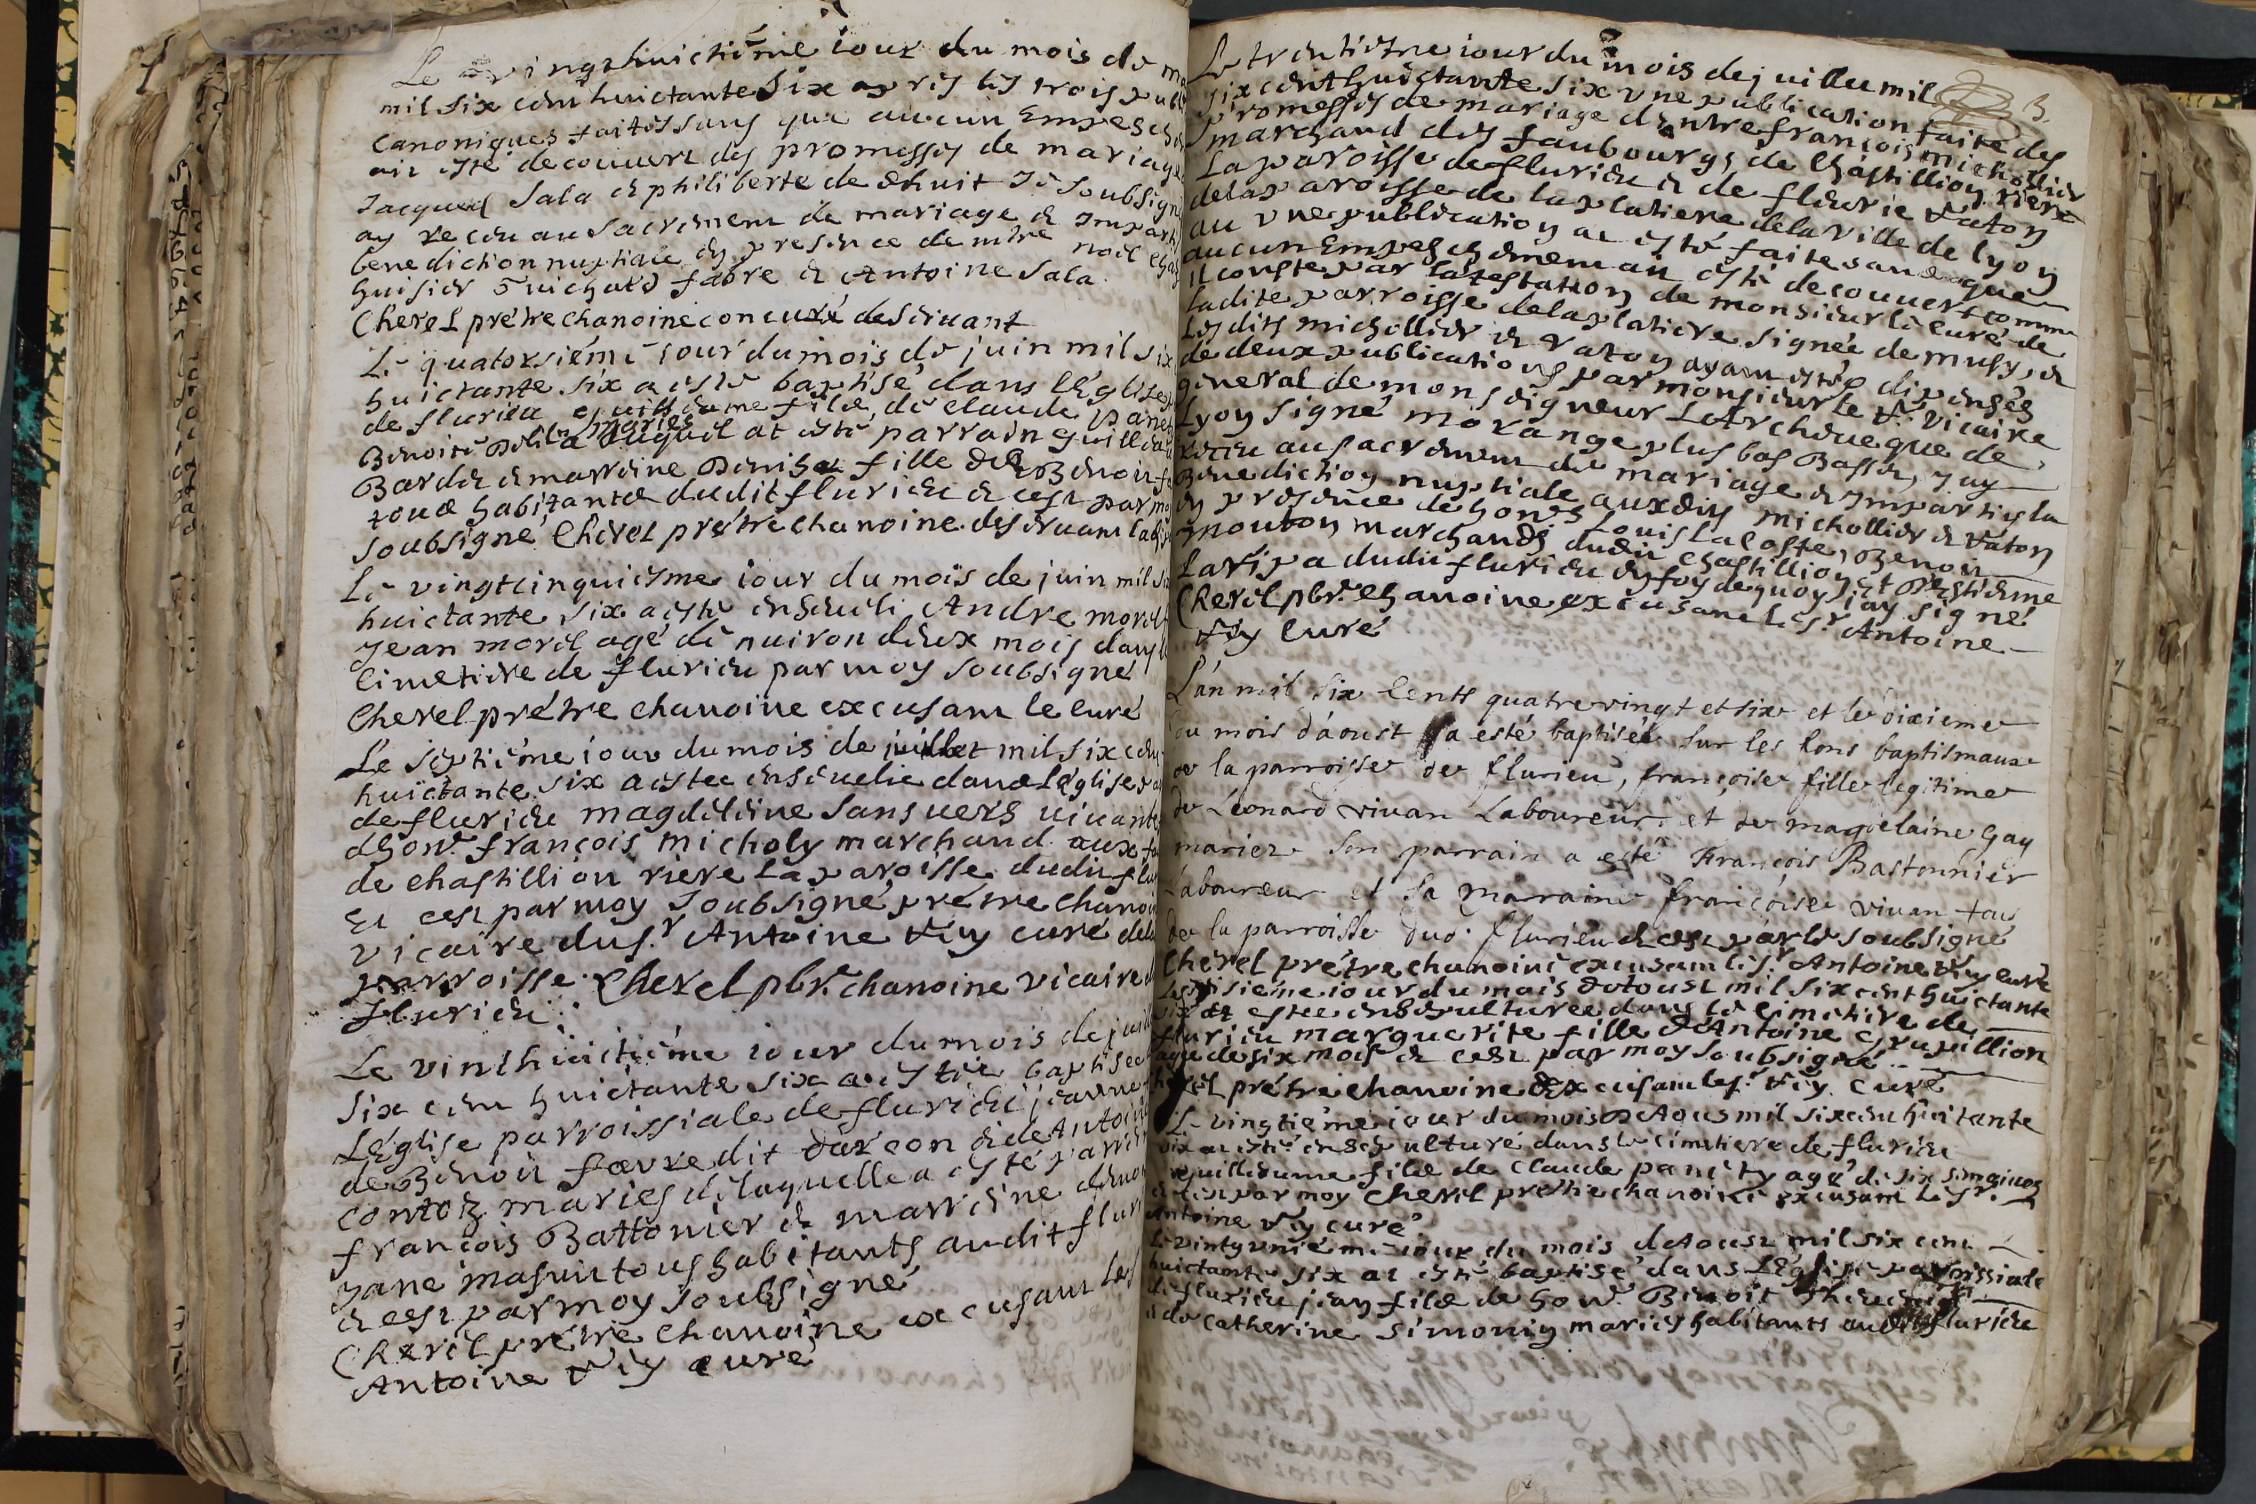 Le vingthuictiéme iour du mois de
mil six cent huictante six apres les trois
canoniques faites sans que aucun Empesch
air esté decouvert des promesses de mariage
Jacques Sala et philiberte de Je soubsigné
ay receu au sacrement de mariage et Imparti
benediction nuptiale en presence de noel
huisier Guichard fabre et Antoine Sala
Cherel prétre chanoine con curé deseruant
Le quatorsiéme iour du mois de juin mil six
huictante six a esté baptisé dans léglise
de flurieu guillaume filz de claude
Benoite maries duquel at esté parrain guillau
Bardet et marreine Denise fille de Benoit
tous habitants dudit flurieu et cest par moy
soubsigné Cherel prétre chanoine deseruant
Le vingtcinquiesme iour du mois de juin mil
huictante six a esté enseueli Andre morel
Jean morel agé denuiron deux mois dans le
cimetiere de flurieu par moy soubsigné
Cherel prétre chanoine excusant le curé
Le septiéme iour du mois de juillet mil six cent
huictante six a estee enseuelie dans Léglise
de flurieu magdeleine Sansuers uiuante
dhonr. françois micholy marchand aux
de chastillion riere La paroisse dudit
Et cest par moy soubsigné prétre chanoine
vicaire du sr. Antoine Viy curé de la
parroisse. Cherel pbr. chanoine vicaire
flurieu
Le vinthuictiéme iour du mois de juill
Six cent huictante six a estée baptisee
Léglise parroissiale de flurieu jeanne
de Benoit faure dit darcon et de Antoin
contoz maries de laquelle a esté parrein
françois Battonier et marreine
habitants audit flur
et cest par moy soubsigné
Cherel prétre chanoine excusant les
Antoine Viy curé
Le trentiesme iour du mois de juillet mil 3.
six cent huictante six vne publication faite des
promesses de mariage dentre françois michollier
marchand des faubourgs de Chastillion riere
La paroisse de flurieu et de fleurie Vaton
de la paroisse de la platiere de la ville de lyon
ou vne publication at esté faite sans que
aucun Empeschement ait esté decouuert comme
il conste par latestation de monsieur le curé de
ladite parroisse de la platiere signée de musy, et
Lesdits michollier et Vaton ayant estés dispensés
de deux publications par monsieur le Vicaire
general de monseigneur LArcheueque de
Lyon Signé morange plus bas Basset, Jay
receu au sacrement de mariage et Imparti la
Benediction nuptiale auxdits michollier et Vaton
en presence de hons Louis Lacoste, Benoit
mouton marchands dudit chastillion et Estienne
Laripa dudit flurieu en foy dequoy jay signé
Cherel pbr. chanoine excusant le sr. Antoine
Viy curé
L'an mil six cents quatre vingt et six et le dixieme
du mois d'aoust a esté baptisée sur les fons baptismaux
de la parroisse de flurieu, françoise fille legitime
de Léonard viuan Laboureur et de magdelaine Gay
mariez Son parrain a esté François Bastonnier
Laboureur et sa marraine françoise viuan tous
de la parroisse dud. flurieu et cest par le soubsigné
Cherel prétre chanoine excusant le sr. Antoine Viy curé
iour du mois dAoust mil six cent huictante
six at estee ensepulturee dans le cimetiere de
flurieu marguerite fille dAntoine crupillion
agée de six mois et cest par moy soubsigné
Cherel prétre chanoine excusant le sr. Viy curé
Le vingtiéme iour du mois dAoust mil six cent huictante
six at esté ensepulturé dans le cimetiere de flurieu
guillaume filz de claude agé de six semaines
et cest par moy Cherel prettre chanoine excusant le sr.
Antoine Viy curé
Le vintvniéme iour du mois dAoust mil six cent
huictante six at esté baptisé dans LEglise parroissiale
de flurieu jean filz de honr. Benoit
et de Catherine Simonin maries habitants audit flurieu